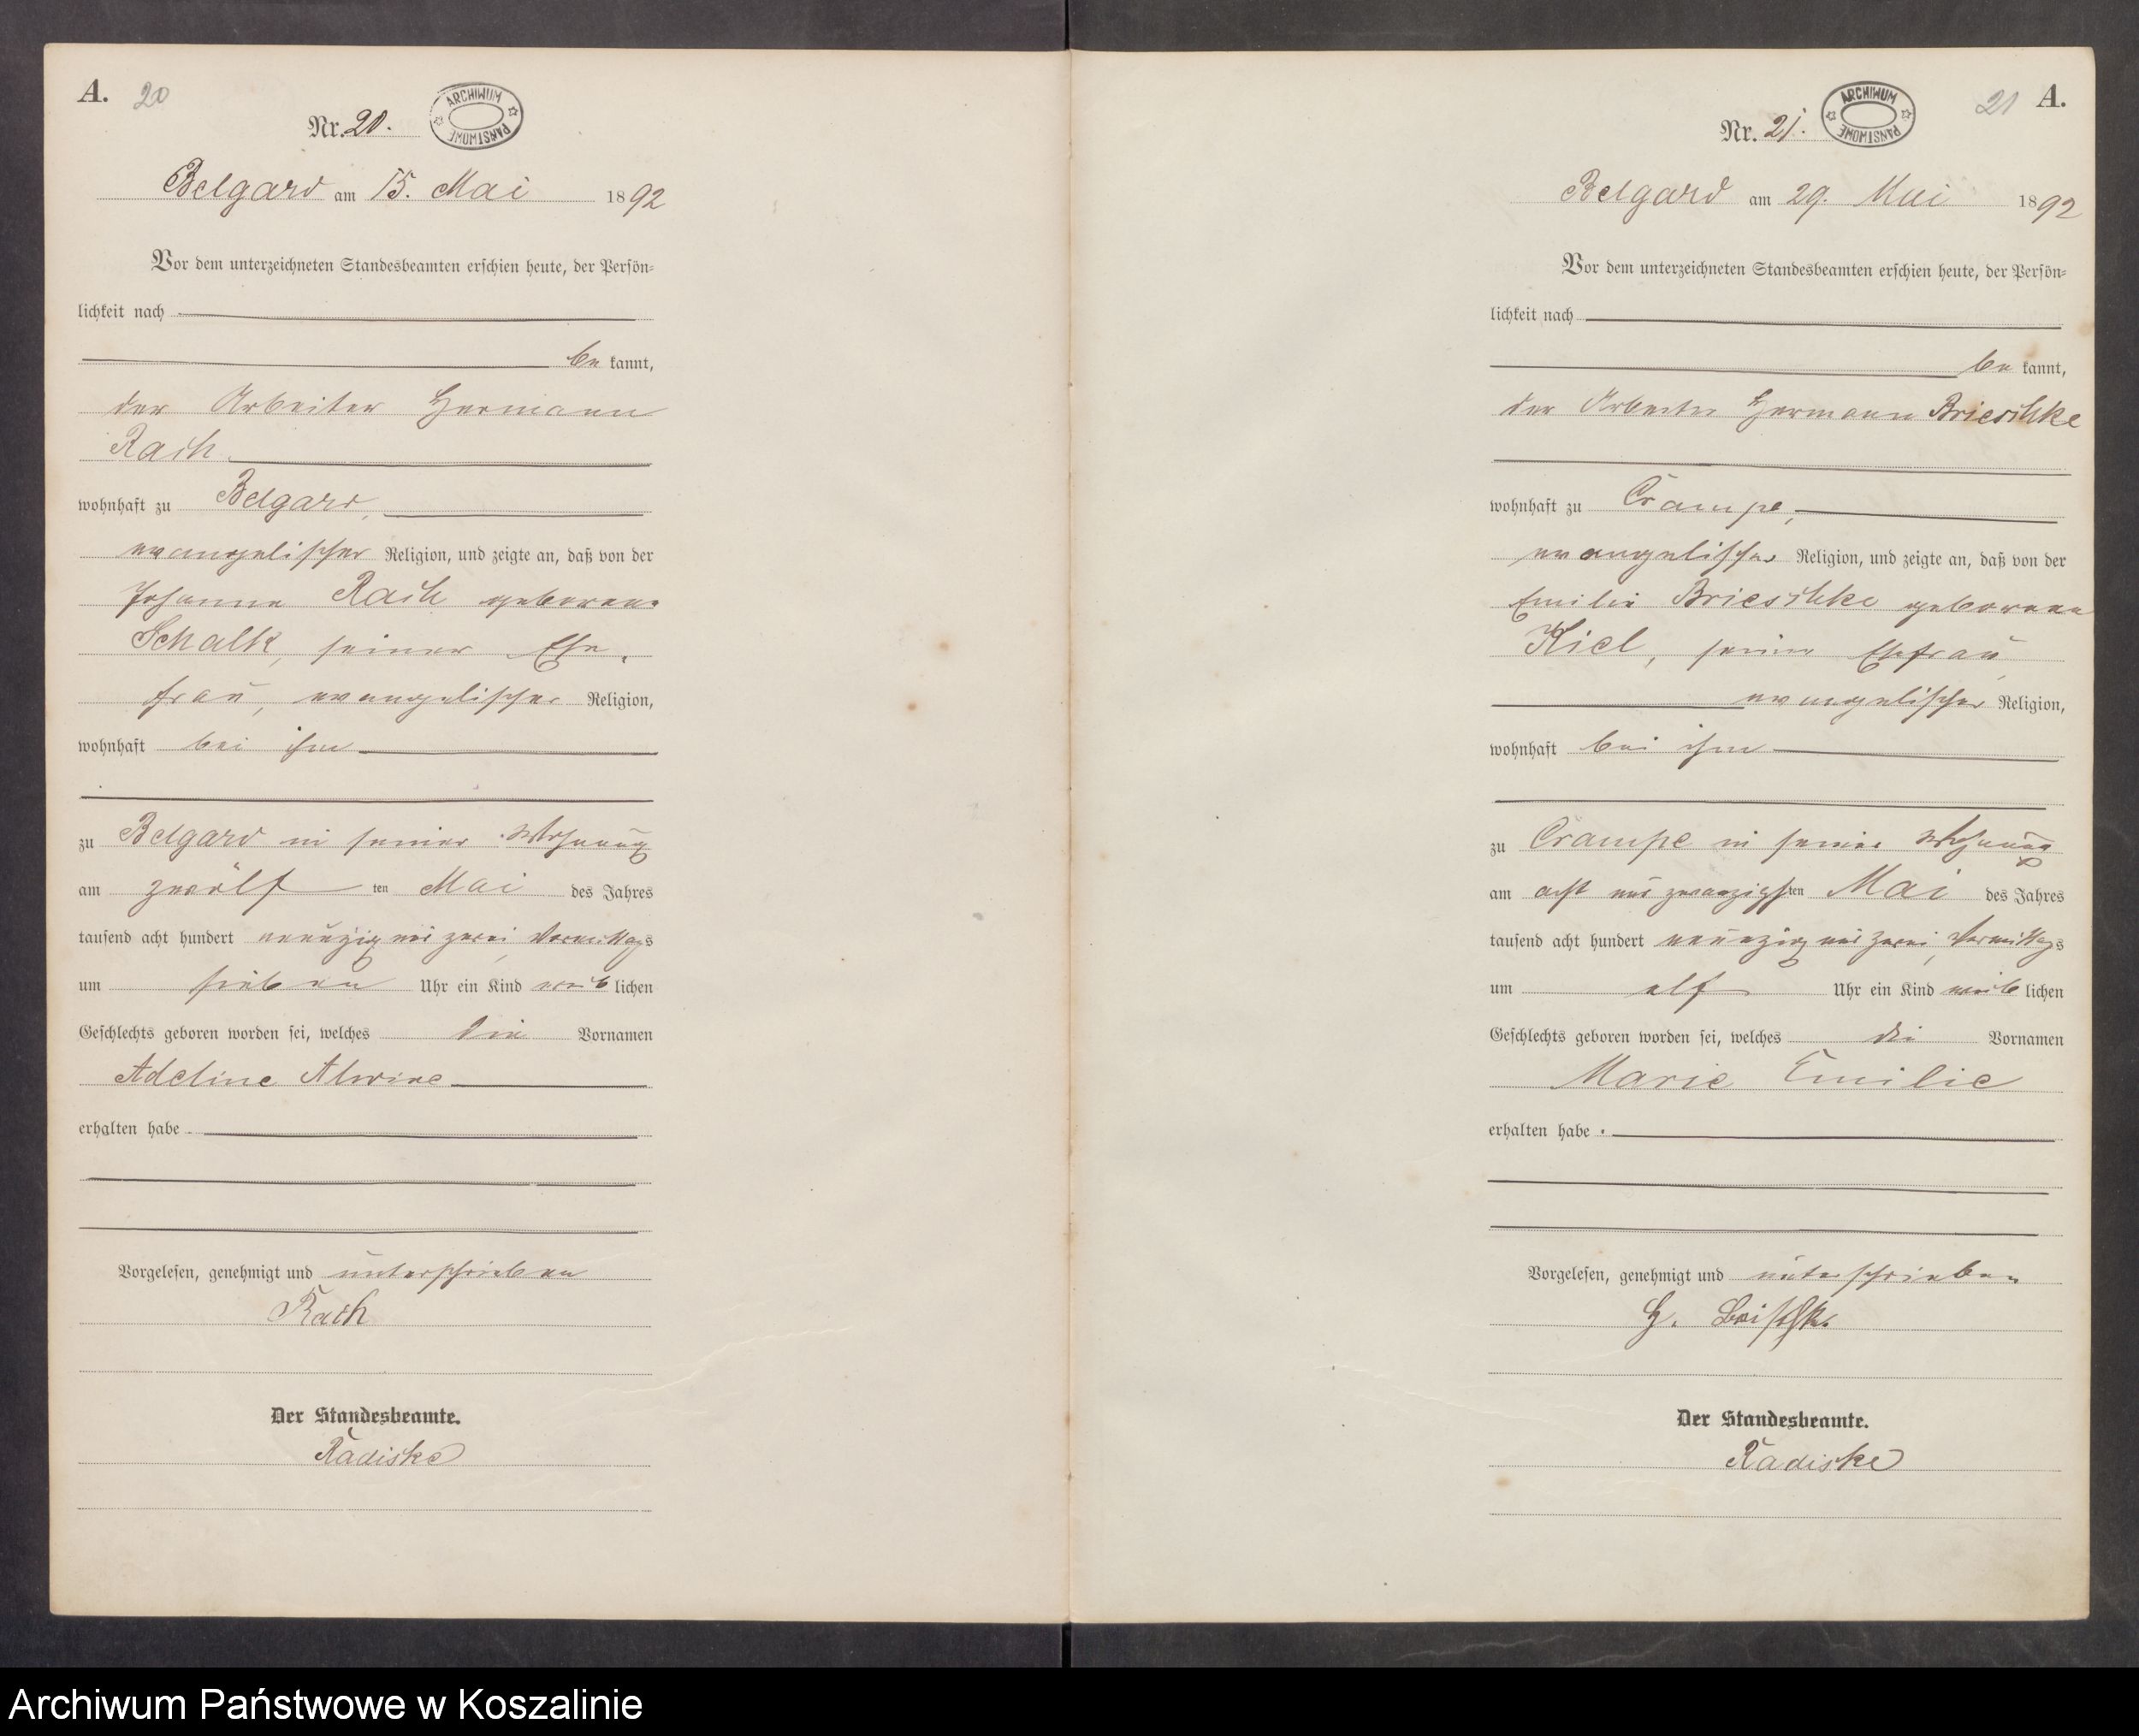 A. 20
ARCHIWUM PAŃSTWOWE
Nr. 20.
Belgard am 15. Mai 1892
Vor dem unterzeichneten Standesbeamten erschien heute, der Persön-
lichkeit nach
be kannt,
der Arbeiter Hermann
Rach
wohnhaft zu Belgard,
evangelischer Religion, und zeigte an, daß von der
Johanna Rach geborene
Schalk, seiner Ehe-
frau, evangelischer Religion,
wohnhaft bei ihm
zu Belgard in seiner Wohnung
am zwölf ten Mai des Jahres
tausend acht hundert neunzig und zwei, Vormittags
um sieben Uhr ein Kind weib lichen
Geschlechts geboren worden sei, welches die Vornamen
Adeline Alwine
erhalten habe
Vorgelesen, genehmigt und unterschrieben
Rach
Der Standesbeamte.
Radiske
21 A.
ARCHIWUM PAŃSTWOWE
Nr. 21.
Belgard am 29. Mai 1892
Vor dem unterzeichneten Standesbeamten erschien heute, der Persön-
lichkeit nach
be kannt,
der Arbeiter Hermann Brieschke
wohnhaft zu Crampe,
evangelischer Religion, und zeigte an, daß von der
Emilie Brieschke geborene
Kiel, seiner Ehefrau,
evangelischer Religion,
wohnhaft bei ihm
zu Crampe in seiner Wohnung
am acht und zwanzigsten Mai des Jahres
tausend acht hundert neunzig und zwei, Vormittags
um elf Uhr ein Kind weib lichen
Geschlechts geboren worden sei, welches die Vornamen
Marie Emilie
erhalten habe.
Vorgelesen, genehmigt und unterschrieben
H.
Der Standesbeamte.
Radiske
Archiwum Państwowe w Koszalinie